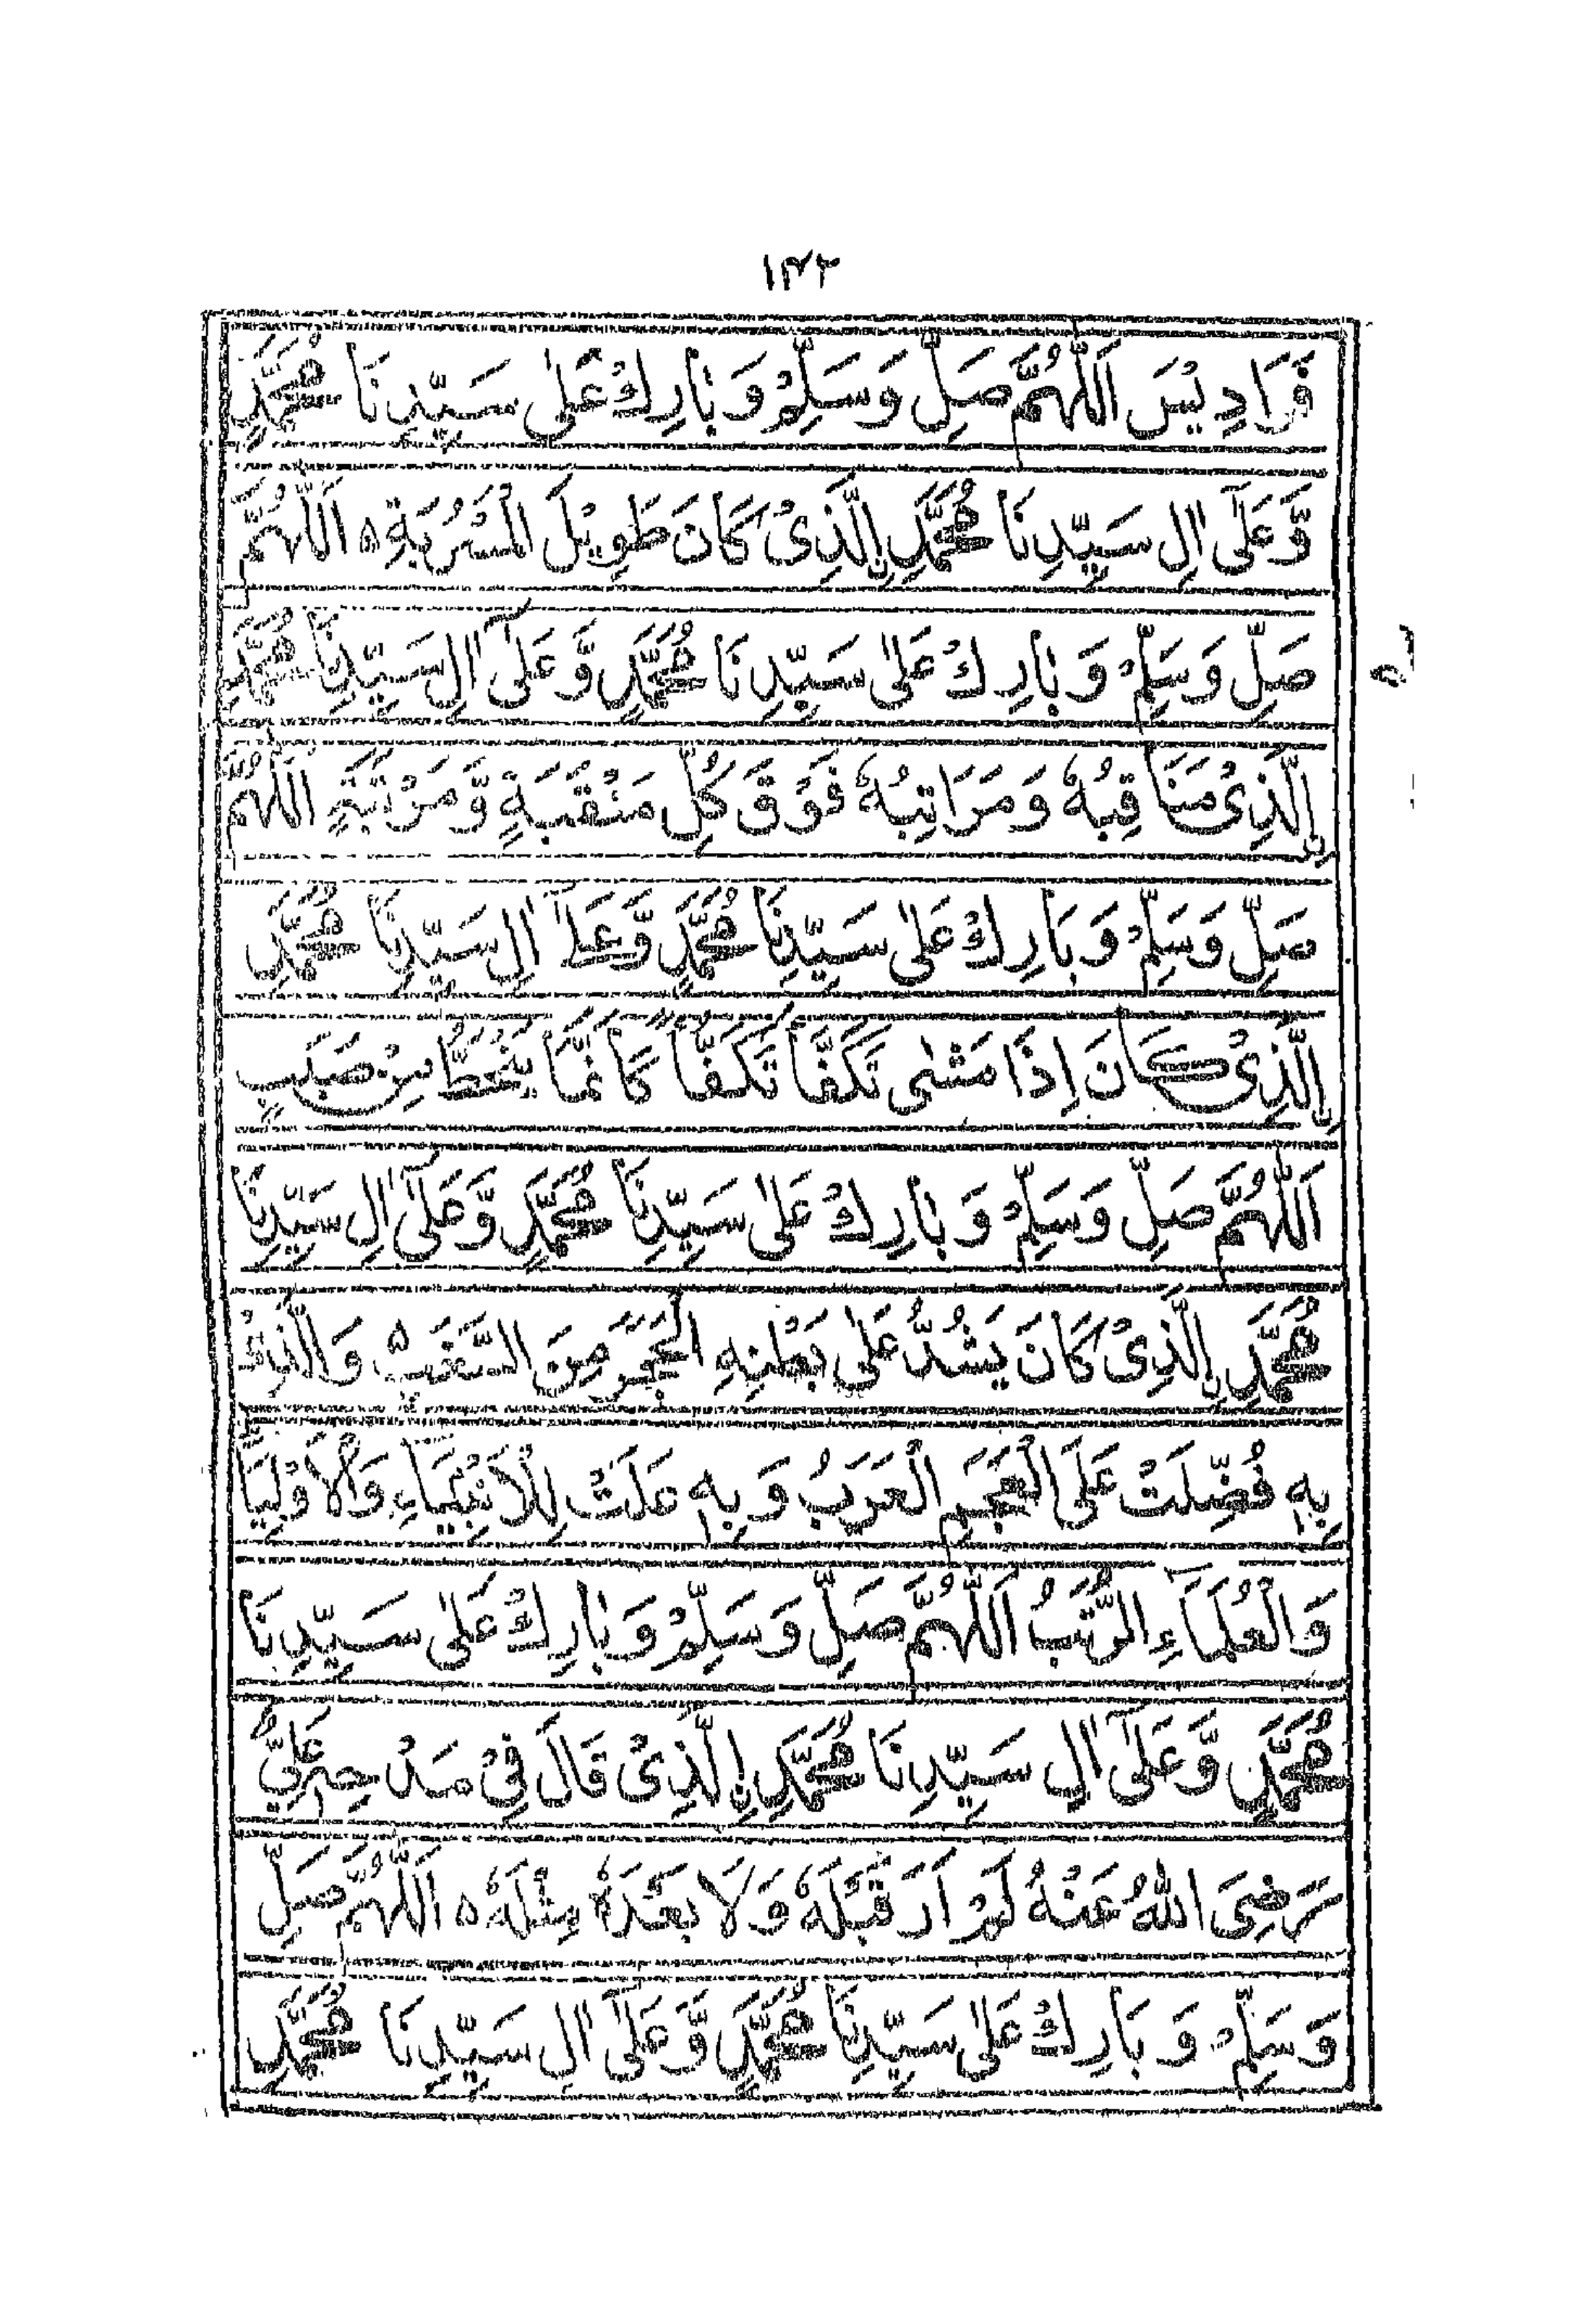 ١٣٢
قَرَادِيْسَ اَللّٰهُمَّ صَلِّ وَسَلِّمْ وَبَارِكْ عَلٰى سَيِّدِنَا مُحَمَّدٍ
وَّعَلٰٓى اٰلِ سَيِّدِنَا مُحَمَّدِ اِلَّذِىْ كَانَ طَوِيْلَ الْمَسْرُبَةِ ه اَللّٰهُمَّ
صَلِّ وَسَلِّمْ وَبَارِكْ عَلٰى سَيِّدِنَا مُحَمَّدٍ وَّعَلٰٓى اٰلِ سَيِّدِنَا مُحَمَّدِ
اِلَّذِىْ مَنَاقِبُهٗ وَمَرَاتِبُهٗ فَوْقَ كُلِّ مَنْقَبَةٍ وَّمَرْتَبَةٍ اَللّٰهُمَّ
صَلِّ وَسَلِّمْ وَبَارِكْ عَلٰى سَيِّدِنَا مُحَمَّدٍ وَّعَلٰٓى اٰلِ سَيِّدِنَا مُحَمَّدِ
اِلَّذِىْ كَانَ اِذَا مَشٰى تَكَفَّأَ تَكَفُّأً كَاَنَّمَا يَنْحَطُّ مِنْ صَبَبٍ
اَللّٰهُمَّ صَلِّ وَسَلِّمْ وَبَارِكْ عَلٰى سَيِّدِنَا مُحَمَّدٍ وَّعَلٰٓى اٰلِ سَيِّدِنَا
مُحَمَّدِ اِلَّذِىْ كَانَ يَشُدُّ عَلٰى بَطْنِهِ الْحَجَرَ مِنَ السَّغَبِ وَالَّذِىْ
بِهٖ فُضِّلَتْ عَلَى الْعَجَمِ الْعَرَبُ وَبِهٖ عَلَتْ لِلْاَنْبِيَآءِ وَالْاَوْلِيَآءِ
وَالْعُلَمَآءِ الرُّتَبُ اَللّٰهُمَّ صَلِّ وَسَلِّمْ وَبَارِكْ عَلٰى سَيِّدِنَا
مُحَمَّدٍ وَّعَلٰٓى اٰلِ سَيِّدِنَا مُحَمَّدِ اِلَّذِىْ قَالَ فِىْ مَدْحِهٖ عَلِىٌّ
رَضِىَ اللّٰهُ عَنْهُ لَمْ اَرَ قَبْلَهٗ وَلَا بَعْدَهٗ مِثْلَهٗ ه اَللّٰهُمَّ صَلِّ
وَسَلِّمْ وَبَارِكْ عَلٰى سَيِّدِنَا مُحَمَّدٍ وَّعَلٰٓى اٰلِ سَيِّدِنَا مُحَمَّدِ